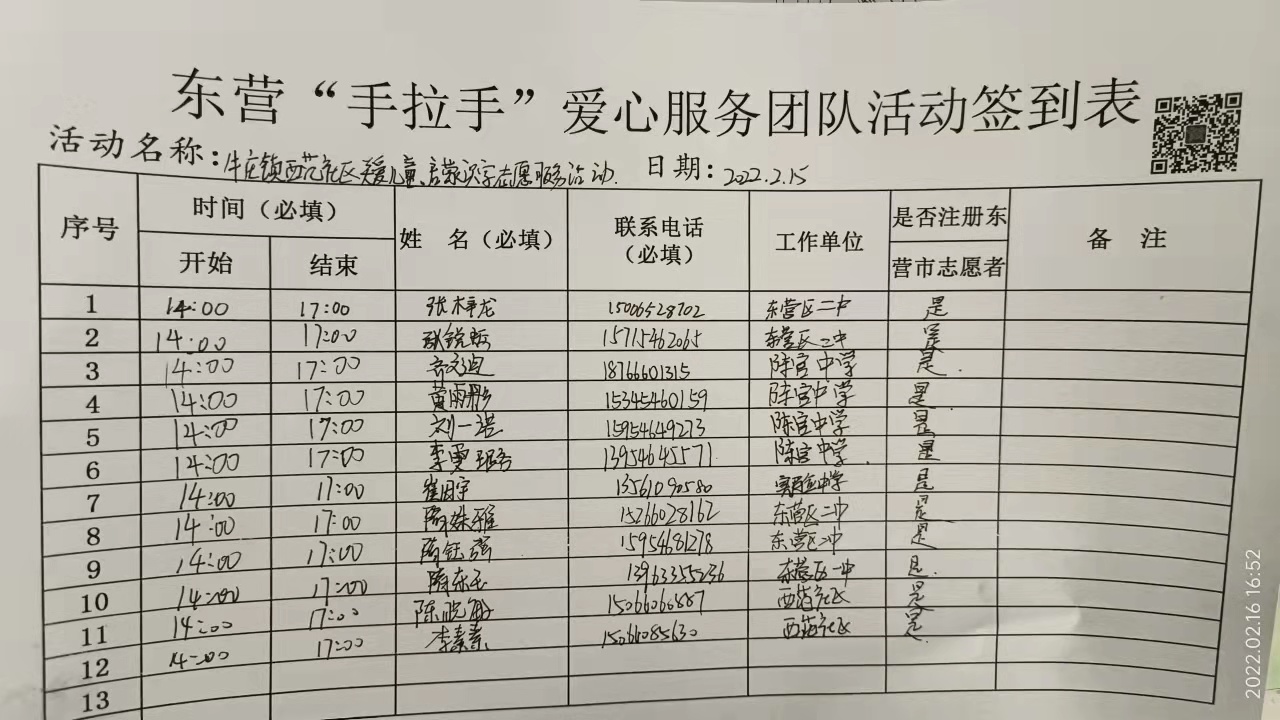 东营“手拉手”爱心服务团队活动签到表
活动名称：牛庄镇西范社区关爱儿童、启蒙识字志愿服务活动. 日期：2022.2.15
序号 时间（必填） 姓 名（必填） 联系电话（必填） 工作单位 是否注册东营市志愿者 备 注
开始 结束
1 14:00 17:00 张梓龙 15006528702 东营区二中 是
2 14:00 17:00 15715462065 东营区二中 是
3 14:00 17:00 18766601315 陈官中学 是.
4 14:00 17:00 黄雨彤 15345460159 陈官中学 是
5 14:00 17:00 刘一诺 15954649273 陈官中学 是
6 14:00 17:00 李雯 13954645571 陈官中学. 是
7 14:00 17:00 13561090580 实验中学 是
8 14:00 17:00 隋姝雅 15266028162 东营区二中 是
9 14:00 17:00 隋钰强 15954681278 东营区二中 是
10 14:00 17:00 隋东玉 13963355236 东营区一中 是.
11 14:00 17:00 陈晓 15066066887 西范社区 是
12 14:00 17:00 李素素 15066085630 西范社区 是.
13
2022.02.16 16:52